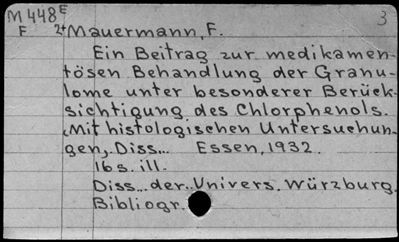 M 448 E 3
F 2+ Mauermann, F.
Ein Beitrag zur medikamen-
tösen Behandlung der Granu-
lome unter besonderer Berück-
sichtigung des Chlorphenols.
(Mit histologischen Untersuchun-
gen,. Diss... Essen, 1932.
16 s. ill.
Diss.. der.. Univers. Würzburg.
Bibliogr.